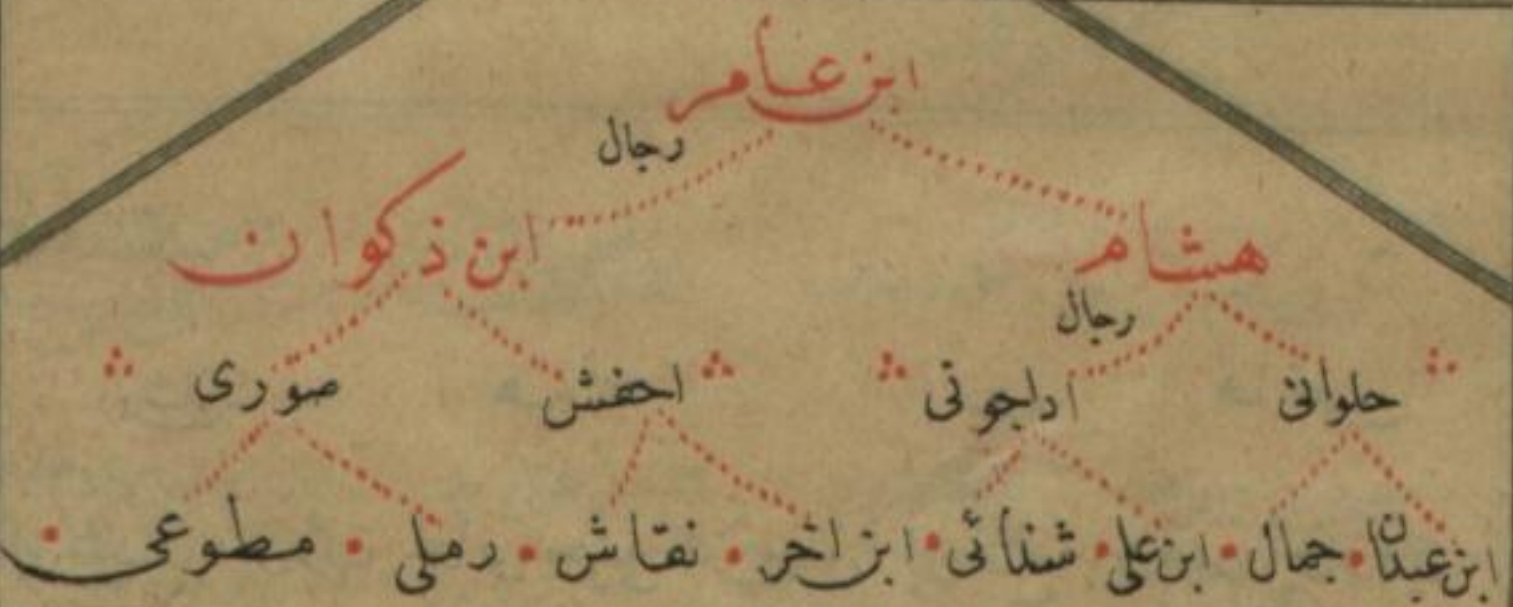 ابن عامر
رجال
هشام ابن ذكوان
رجال
حلوانی اداجونی احفش صوری
ابن عبدان جمال ابن علی شذائی ابن اخر نقاش رملی مطوعی